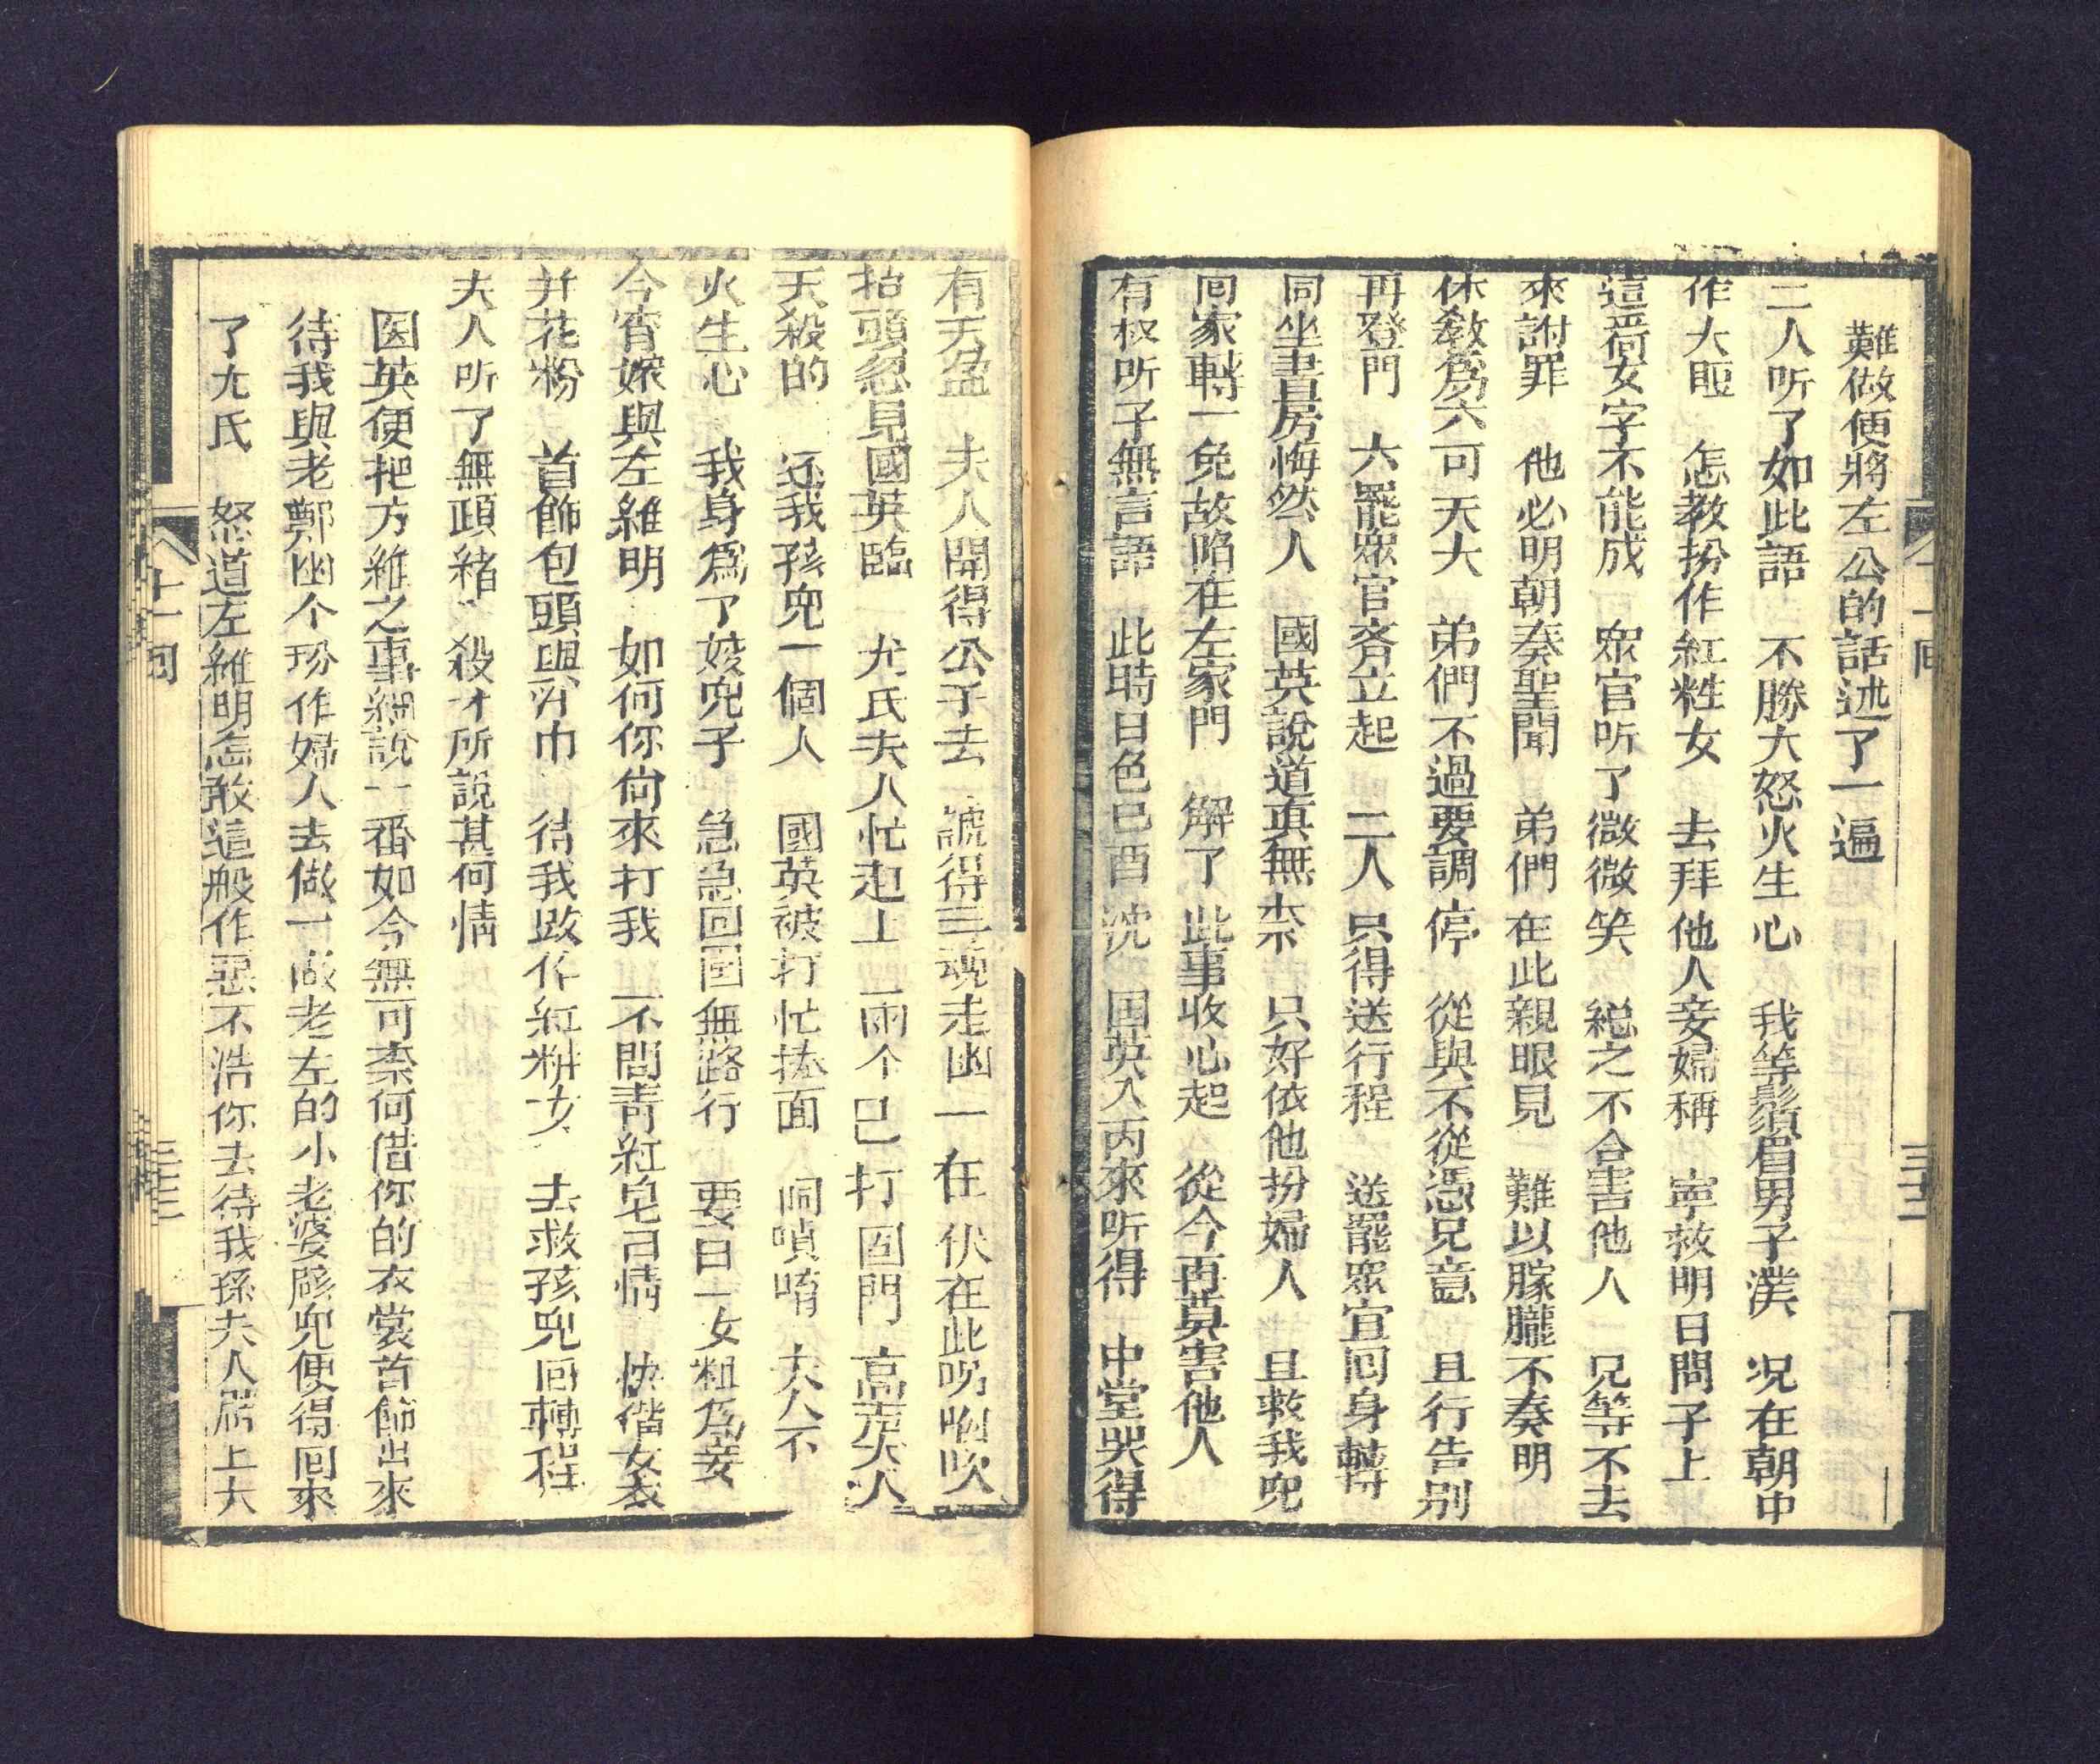 難做便將左公的話述了一遍
二人听了如此語　不勝大怒火生心　我等鬚眉男子漢　况在朝中
作大臣　怎教扮作紅粧女　去拜他人妾婦稱　寧救明日問子上
這荷女字不能成　眾官听了微微笑　総之不合害他人　兄等不去
來謝罪　他必明朝奏聖聞　弟們在此親眼見　難以朦朧不奏明
休敘為六可天大　弟們不過要調停　從與不從憑兄意　且行告别
再登門　六罷眾官斉立起　二人只得送行程　送罷眾宜囘身轉
同坐書房悔然人　國英說道真無柰　只好依他扮婦人　且救我兒
囘家轉　免故陷在左家門　解了此事收心起　從今再莫害他人
有权听子無言語　此時日色巳酉沈　国英入丙來听得　中堂哭得
有天盈　夫人開得公子去　諕得三魂走　一在伏在此
抬頭忽見國英臨　尤氏夫人忙走上　兩个巳打　門　高声夫人
天殺的　还我孩兒一個人　國英被打忙　面　　夫人不
火生心　我身為了　兒子　急急回　無路行　要　女粗為妾
今宵嫁與左維明　如何你尙來打我　不問青紅皂白情　快偹女衣
并花粉　首飾包頭與汗巾　待我改作紅粧女　去救孩兒囘轉程
夫人听了無頭緒　殺才所說甚何情
国英便把方維之事細說一番如今無可柰何借你的衣裳首飾出來
待我與老鄭凶个扮作婦人去做一做老左的小老婆孩兒便得囘來
了尤氏　怒道左維明怎敢這般作惡不浩你去待我孫夫人府上大
十一囘
三十二
十一囘
三十三